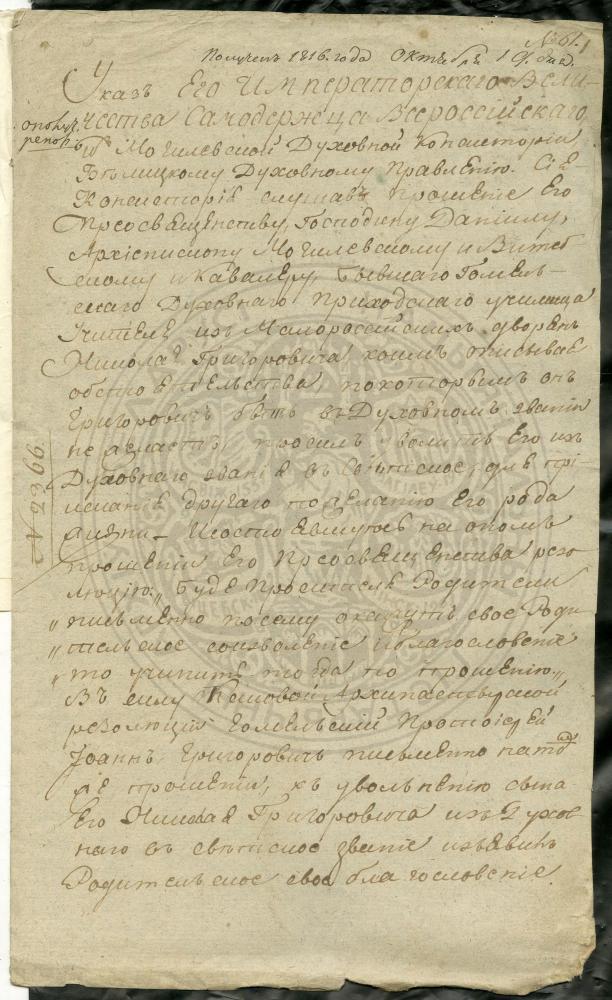 № 61.
Получен 1816. года Октября 19. дня.
Указъ Его Императорскаго Вели-
чества Самодержца Всероссійскаго,
о получ.
репор.
изъ Могилевской Духовной Консисторіи
Бѣлицкому Духовному Правленію. Сія
Консисторія слушавъ прошеніе Его
Преосвященству, Господину Даніилу,
Архіепископу Могилевскому и Витеб-
скому и Кавалеру, бывшаго Гомель-
скаго Духовнаго приходскаго училища
Учителя изъ Малороссійскихъ дворянъ
Николая Григоровича, коимъ описывая
обстоятельства, по которымъ онъ
Григоровичъ быть въ Духовномъ званіи
не желаетъ, просилъ уволить Его изъ
Духовнаго званія въ Свѣтское, для прі-
исканія другаго по желанію Его рода
жизни. И состоявшуюсь на ономъ
прошеніи Его Преосвященства резо-
люцію: „буде просителя Родители
„письменно посему окажутъ свое Роди-
„тельское соизволеніе и благословеніе
„то учинить тогда по прошенію„
Въ силу каковой Архипастырской
резолюціи Гомельскій Протоіерей
Іоаннъ Григоровичъ письменно на томъ
же прошеніи, къ увольненію сына
Его Николая Григоровича изъ Духов-
наго въ свѣтское званіе изъявилъ
Родительское свое благословеніе.
N 2366.